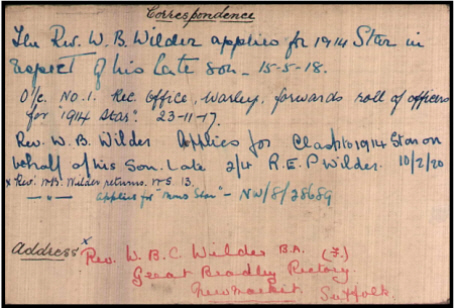 Correspondence
The Rev. W. B. Wilder applies for 1914 Star in
respect of his late son - 15-5-18.
O/c. No. 1. Rec. Office, Warley, forwards roll of officers
for 1914 Star. 23-11-17.
Rev. W. B. Wilder Applies for Clasp to 1914 Star on
behalf of his Son. Late 2/Lt R. E. P Wilder. 10/2/20
x Rev. W.B. Wilder returns. 13.
— " — applies for "Mons Star" - NW/8/28689
Address x Rev. W. B. C. Wilder B.A. (F.)
Great Bradley Rectory.
Newmarket. Suffolk